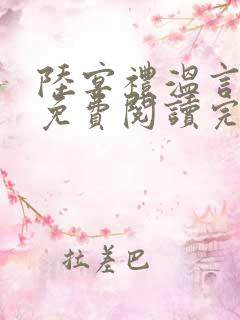 陸宴禮溫言
免費閱讀完
拉差巴